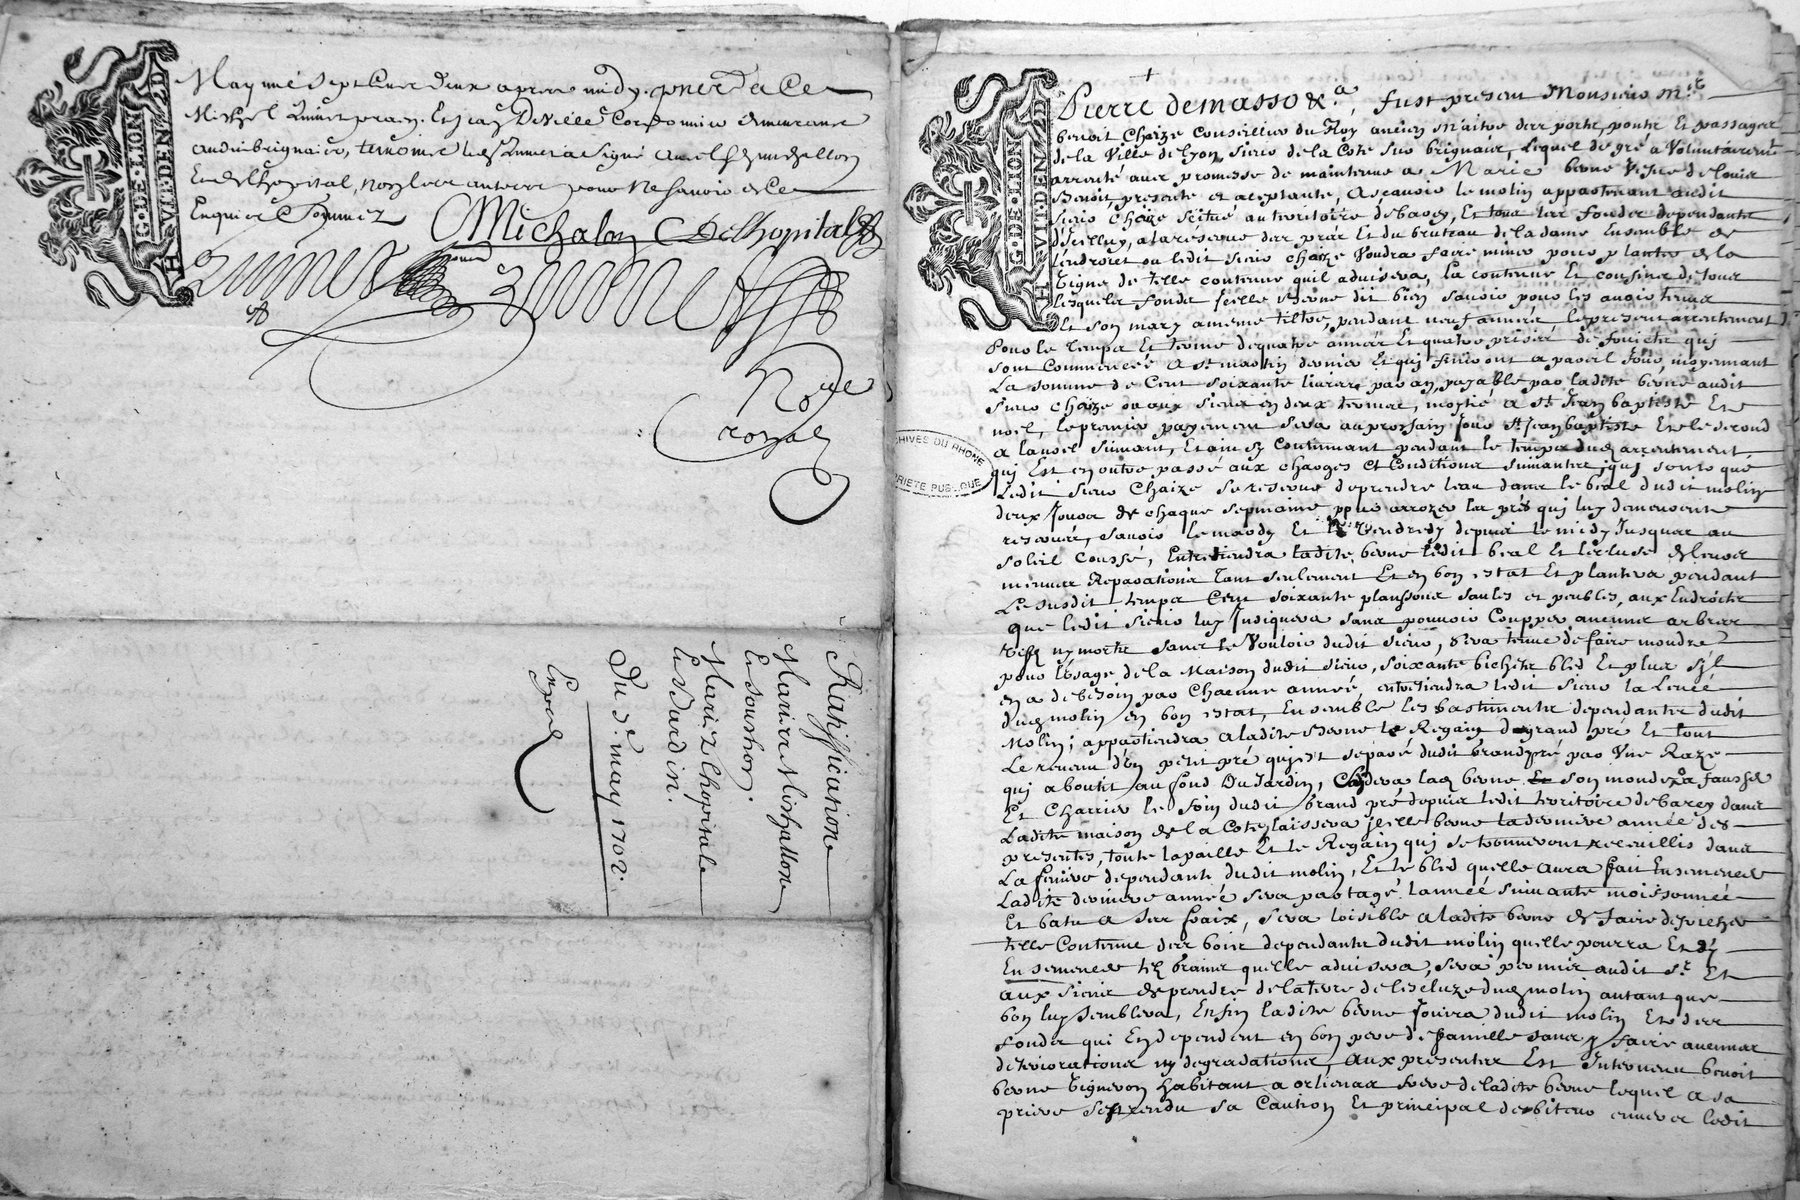 G. DE. LION
H VIT. DEN. 2D
May mil sept cent deux apres midy. presents a ce
Michel Zimmer et Jean Deville Cordonnier demeurant
audit brignais, temoins led. Zimmer a signé avec lesd. michallon
Et delhopital, non les autres pour ne savoir de ce
Enquis et sommez
Michalon Delhopital
Not.re
royal
Ratiffication
Marie Michallon
Le souchon.
Marie Lhopitale
Le Dardin.
Du d.e may 1702.
Exped
G. DE. LION
H VIT. DEN. 2D
Pierre demasso &.a, fust present Monsieur M.re
benoit Chaize Conseillier du Roy ancien Maitre des ports, ponts Et passages
de la Ville de lyon, sieur de la Cote sur brignais, Lequel de gré a Voluntairement
arrenté avec promesse de maintenir a Marie berne Vefve de louis
Benoit presente et aceptante, A sçavoir le molin appartenant audit
sieur Chaize scitué au territoire de barey, Et tous les fonds dependants
D'icelluy, a la reserve des prés Et du bruteau de la dame Ensemble de
lendroict ou ledit sieur Chaize Voudra faire miner pour planter de la
Vigne de telle contenue quil advisera, La contenue Et confins de tous
lesquels fonds jcelle Berne dit bien savoir pour les avoir tenus
Et son mary a meme tiltre, pendant neuf année, le present arrentement
Pour le temps Et terme de quatre années Et quatre prises de fruicts qui
sont Commencé a St. martin dernier Et qui finiront a pareil Jour, moyennant
La somme de Cent soixante livres par an, payable par ladite berne audit
sieur Chaize ou aux siens en deux termes, moytié a St. Jean baptiste Et
noel, le premier payement sera au prochain jour St. Jean baptiste Et le second
a la noel suivant, Et ainsy Continuant pendant le temps dud. arrentement,
qui Est en outre passé aux charges et Conditions suivantes, qui sont que
Ledit sieur Chaize se reserve de prendre leau dans le beal dudit molin
deux Jours de chaque sepmaine pour arrozer les prés qui luy demeurent
reservés, savoir le mardy Et le Vendredy depuis le midy Jusques au
soleil Coussé, Entretiendra ladite berne ledit beal Et lecluse de leurs
menues Reparations tant seulement Et en bon estat Et plantera pendant
Le susdit temps Cent soixante planssons saules et peubles, aux Endroits
que ledit sieur luy Indiquera sans pouvoir Coupper aucuns arbres
vifs ny morts sans le Vouloir dudit sieur, sera tenue de faire moudre
pour lusage de la Maison dudit sieur, soixante bichets bled Et plus sjl
en a de bezoin par Chacune année, entretiendra ledit sieur la Levée
dud. molin en bon estat, Ensemble les bastiments dependants dudit
Molin; appartiendra a ladite Berne le Regain du grand pré Et tout
Le revenu d'un petit pré qui est separé dudit grand pré par Une Raze
qui aboutit au fond Du Jardin, Cedera lad. berne son monde a la fausse
Et Charrier le foin dudit grand pré depuis ledit territoire de barey dans
Ladite maison de la Cote, laissera jcelle berne la derniere année des
presentes, toute la paille Et le Regain qui se trouveront recueillis dans
La feniere dependante dudit molin, Et le bled quelle aura fait Ensemencer
Ladite derniere année sera partagé lannée suivante moissonné
Et batu a ses fraix, sera loisible a ladite berne de faire defricher
telle Contenue des bois dependants dudit molin quelle pourra Et dy
Ensemencer tels grains quelle advisera, sera permis audit sr. Et
aux siens de prendre de la terre de lescluze dud. molin autant que
bon luy semblera, Enfin ladite berne Jouira dudit molin Et des
fonds qui En dependent en bon pere de famille sans y faire aucunes
deteriorations ny degradations, Aux presentes Est Intervenu benoit
berne Vigneron habitant a orlienas frere de ladite berne lequel a sa
priere s'est rendu sa Caution Et principal debiteur envers ledit
ARCHIVES DU RHONE
PROPRIETE PUBLIQUE